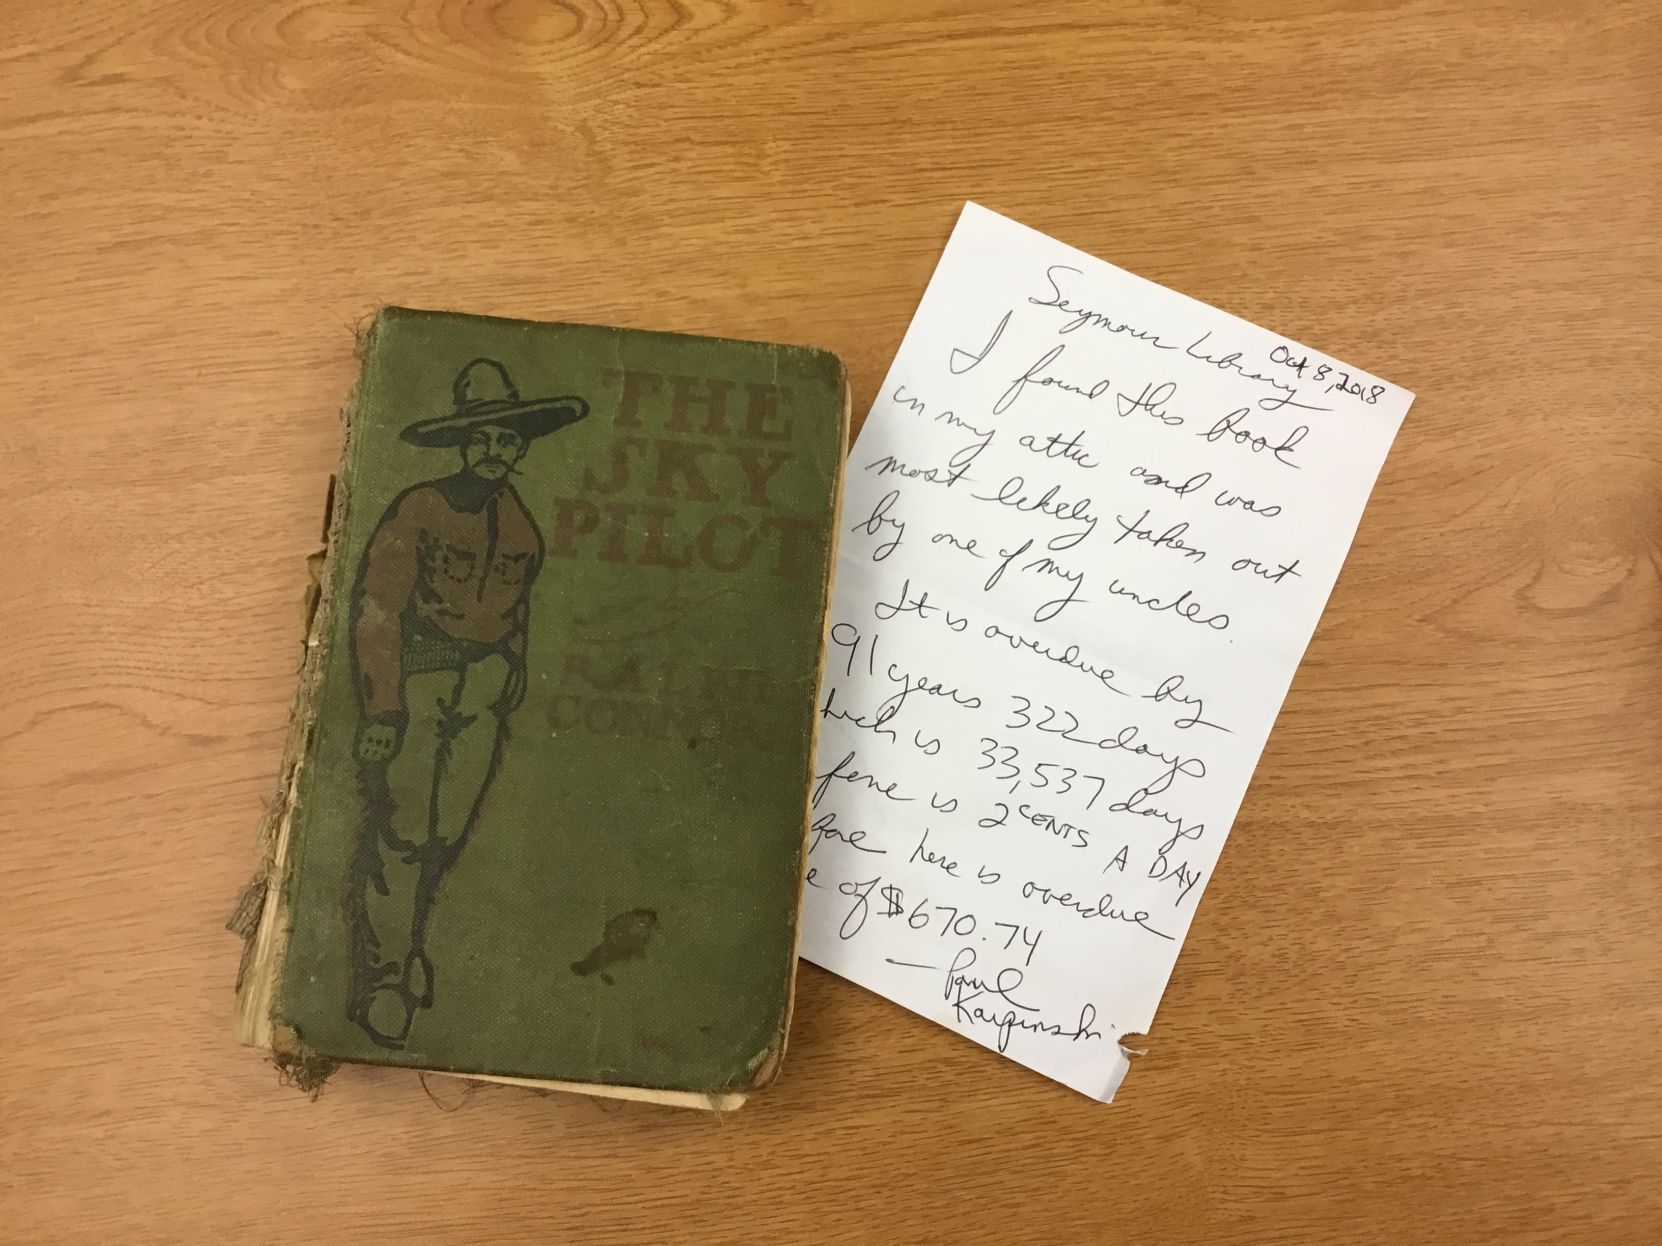 THE
SKY
PILOT
RALPH
CONNOR
Seymour Library
Oct 8, 2018
I found this book
in my attic and was
most likely taken out
by one of my uncles.
It is overdue by
91 years 322 days
hich is 33,537 days
fine is 2 CENTS A DAY
fore here is overdue
e of $670.74
— Paul
Karpinski